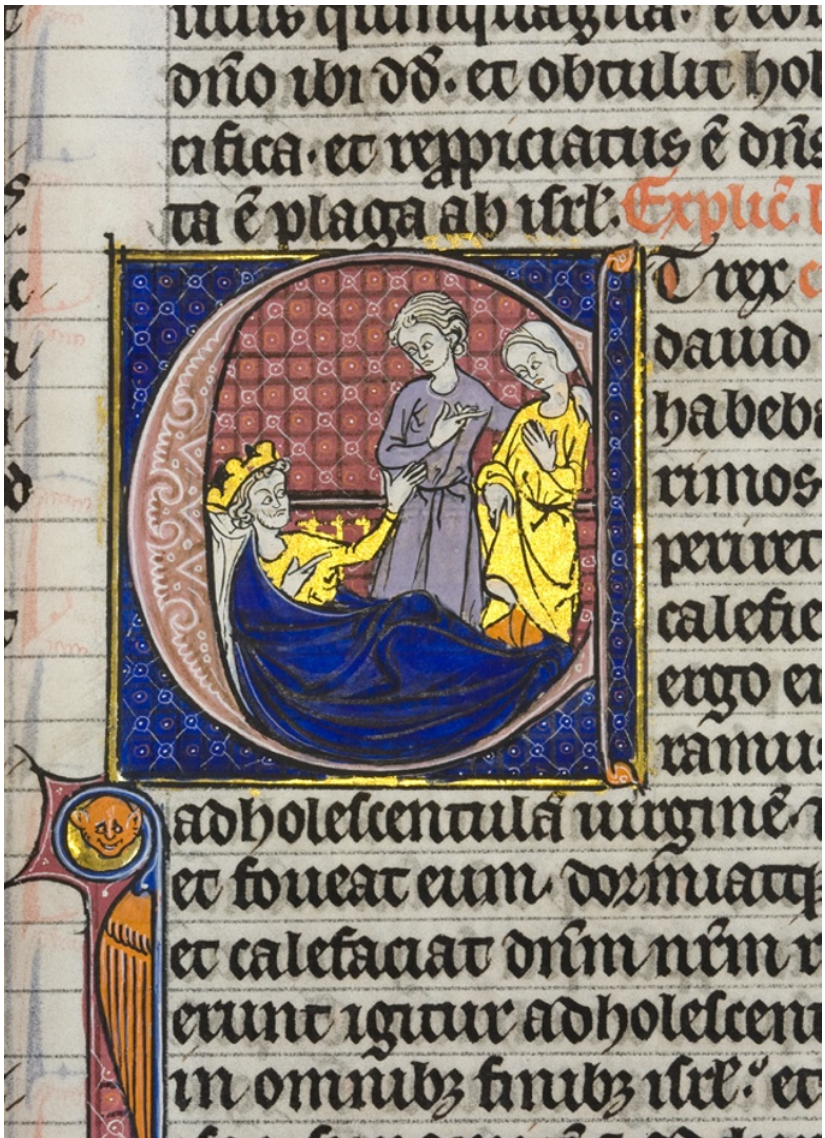 quinquagita·
dño ibi dd̃· et obtulit hol
cifica· et reppiciatus ẽ dñs
ta ẽ plaga ab isrl̃· Explic̃· l
E T rex
dauid
habeba
rimos
periret
calefie
ergo
ramus
adholescentulã uirginẽ·
et foueat eum· dormiatq̃
et calefaciat dñm nr̃m r
erunt igitur adholescent
in omnibꝫ finibꝫ isrl̃· et